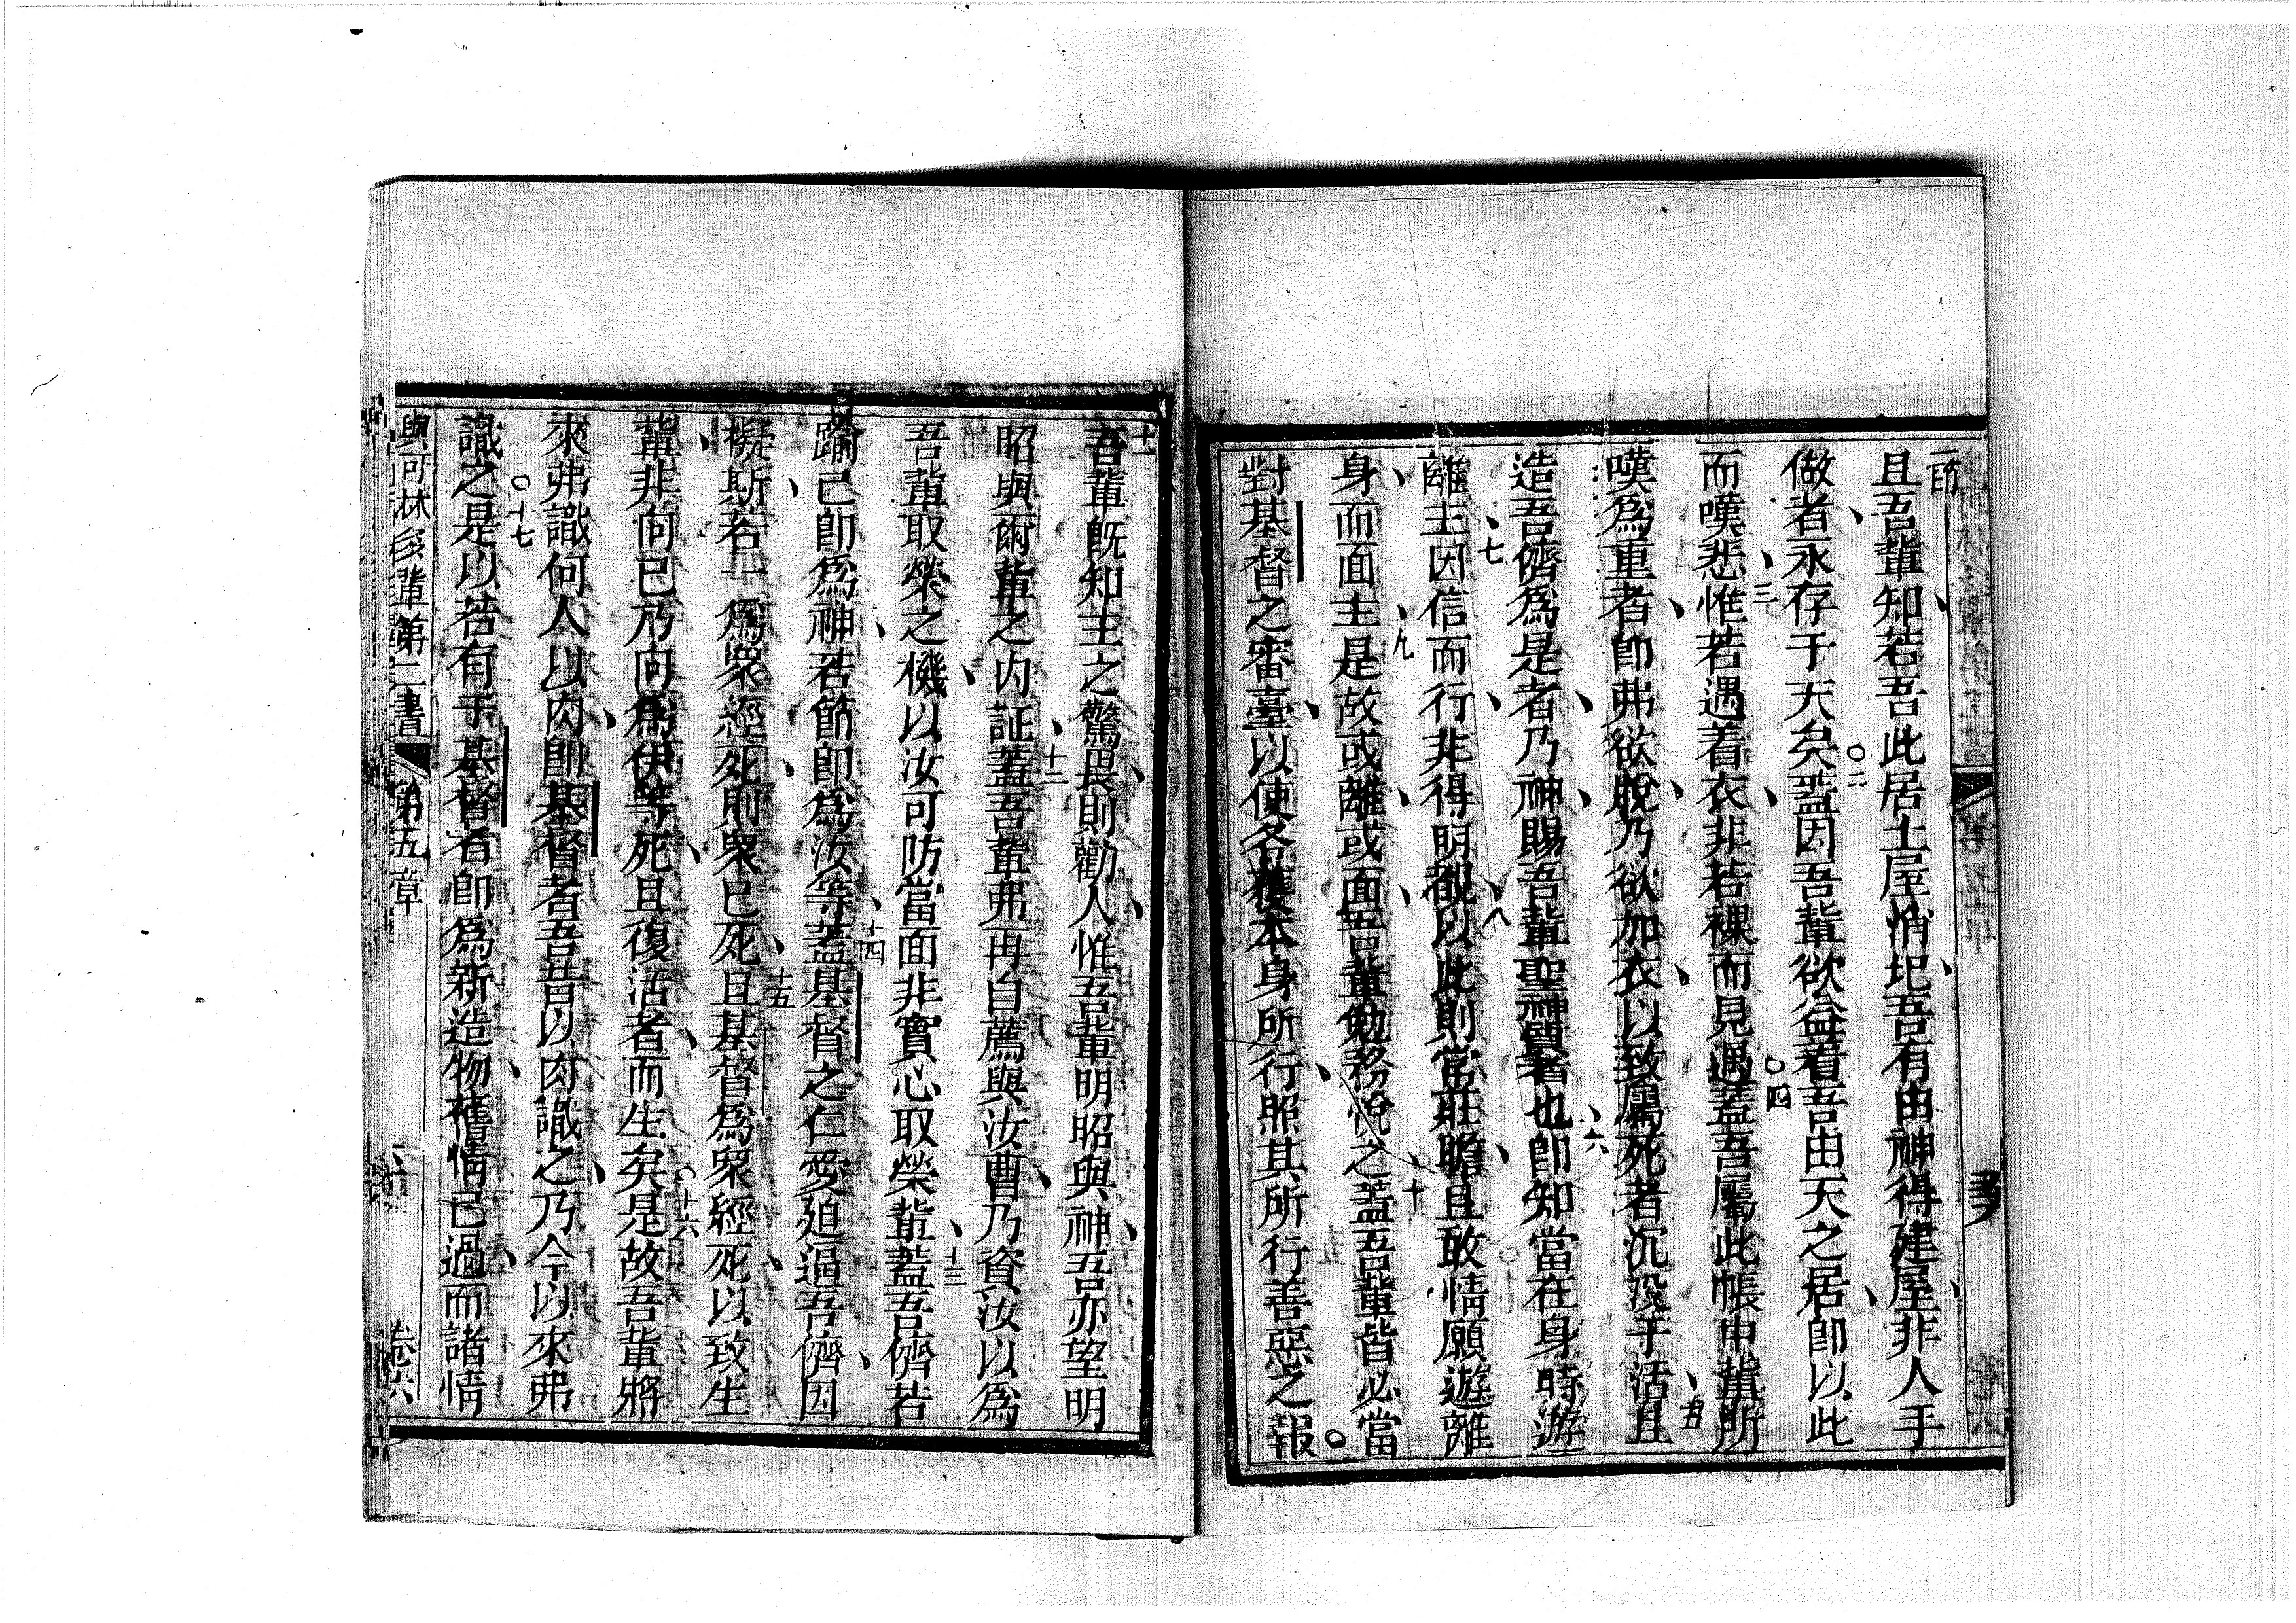 一節
且吾軰知若吾此居土屋消圯吾有由神得建屋非人手
做者永存于天矣〇二蓋因吾軰欲益着吾由天之居卽以此
而嘆悲三惟若遇着衣非若裸而見遇〇四蓋吾屬此帳中軰所
嘆爲重者卽弗欲脫乃欲加衣以致屬死者沉没于活五且
造吾儕爲是者乃神賜吾軰聖神質者也六卽知當在身時遊
離主七因信而行非得明覩八以此則常莊膽且敢情願遊離
身而面主九是故或離或面吾軰勉務悅之十蓋吾軰皆必當
對基督之審臺以使各獲本身所行照其所行善惡之報〇
十一
吾軰旣知主之驚畏則勸人惟吾軰明昭與神吾亦望明
昭與爾軰之内証十二蓋吾軰弗再自薦與汝曹乃資汝以爲
吾軰取榮之機以汝可防當面非實心取榮軰十三蓋吾儕若
踰己卽爲神若節卽爲汝等十四蓋基督之仁愛廹逼吾儕因
擬斯若一爲衆經死則衆已死十五且基督爲衆經死以致生
軰非向已乃向爲伊等死且復活者而生矣〇十六是故吾軰將
來弗識何人以肉卽基督者吾昔以肉識之乃今以來弗
識之〇十七是以若有于基督者卽爲新造物舊情已過而諸情
與可林多軰第二書 第五章 卷六